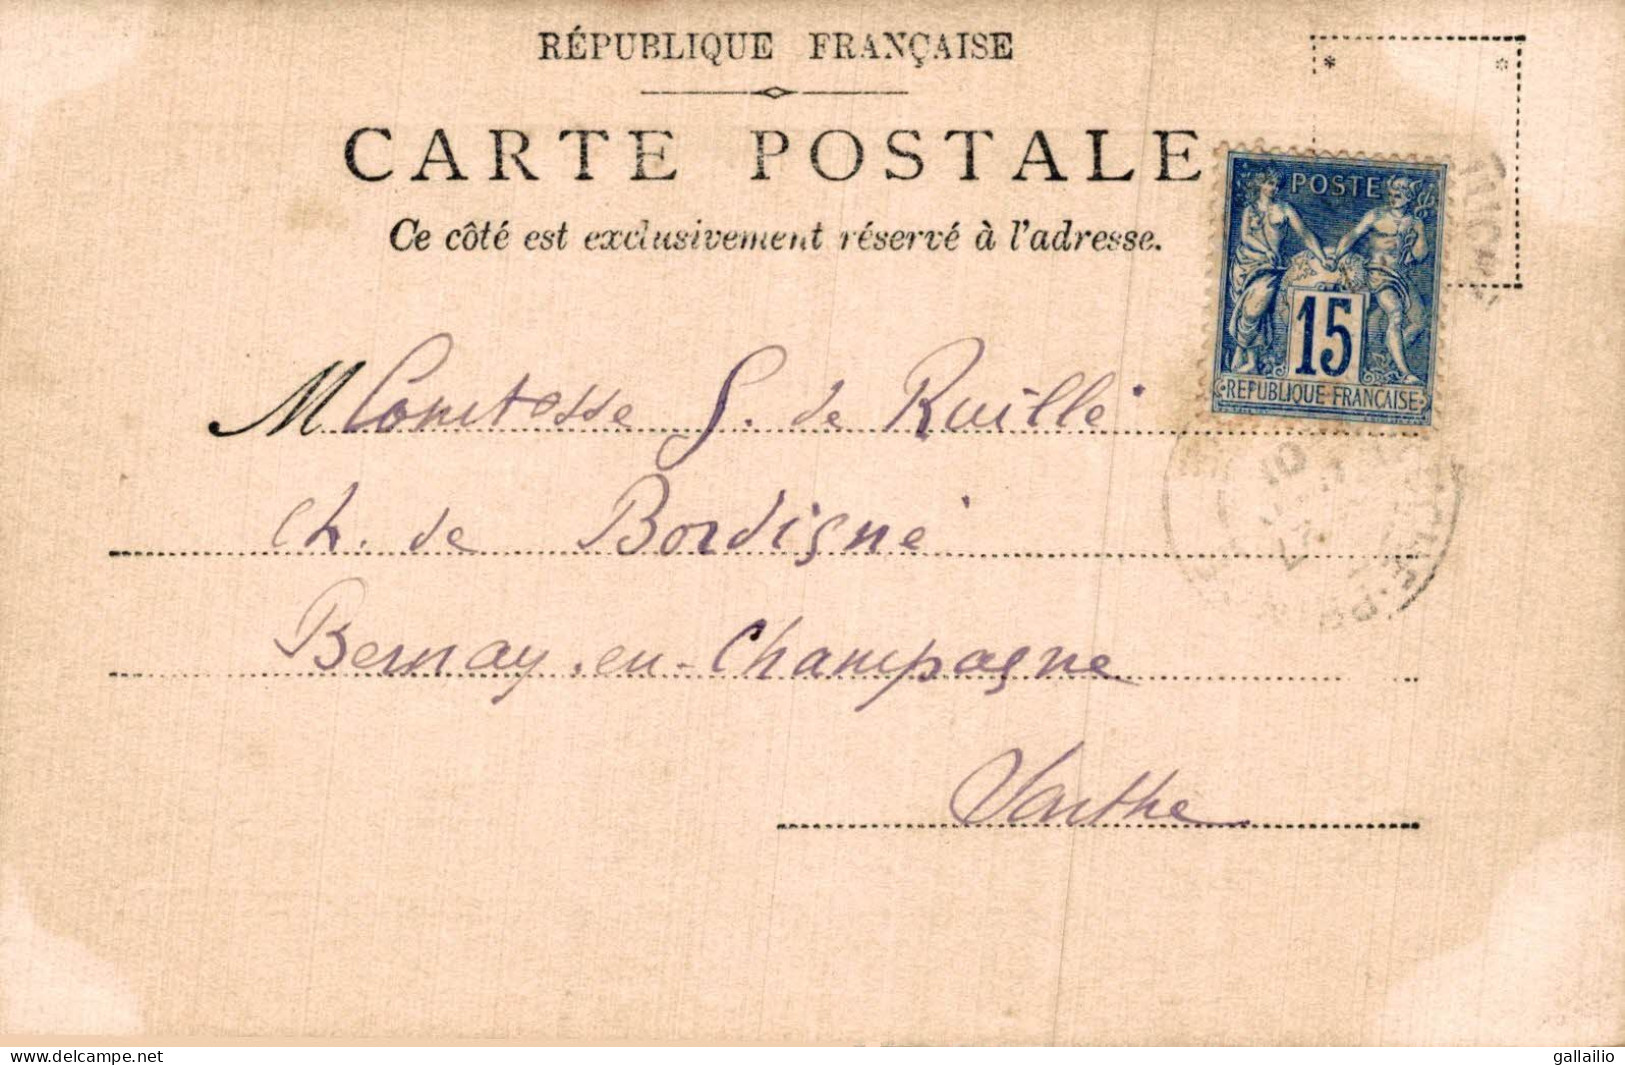 RÉPUBLIQUE FRANÇAISE
CARTE POSTALE
Ce côté est exclusivement réservé à l'adresse.
POSTE
15
REPUBLIQUE FRANÇAISE
M Comtesse G. de Ruillé
Ch. de Bordigné
Bernay-en-Champagne
Sarthe
delcampe.net
gallailio